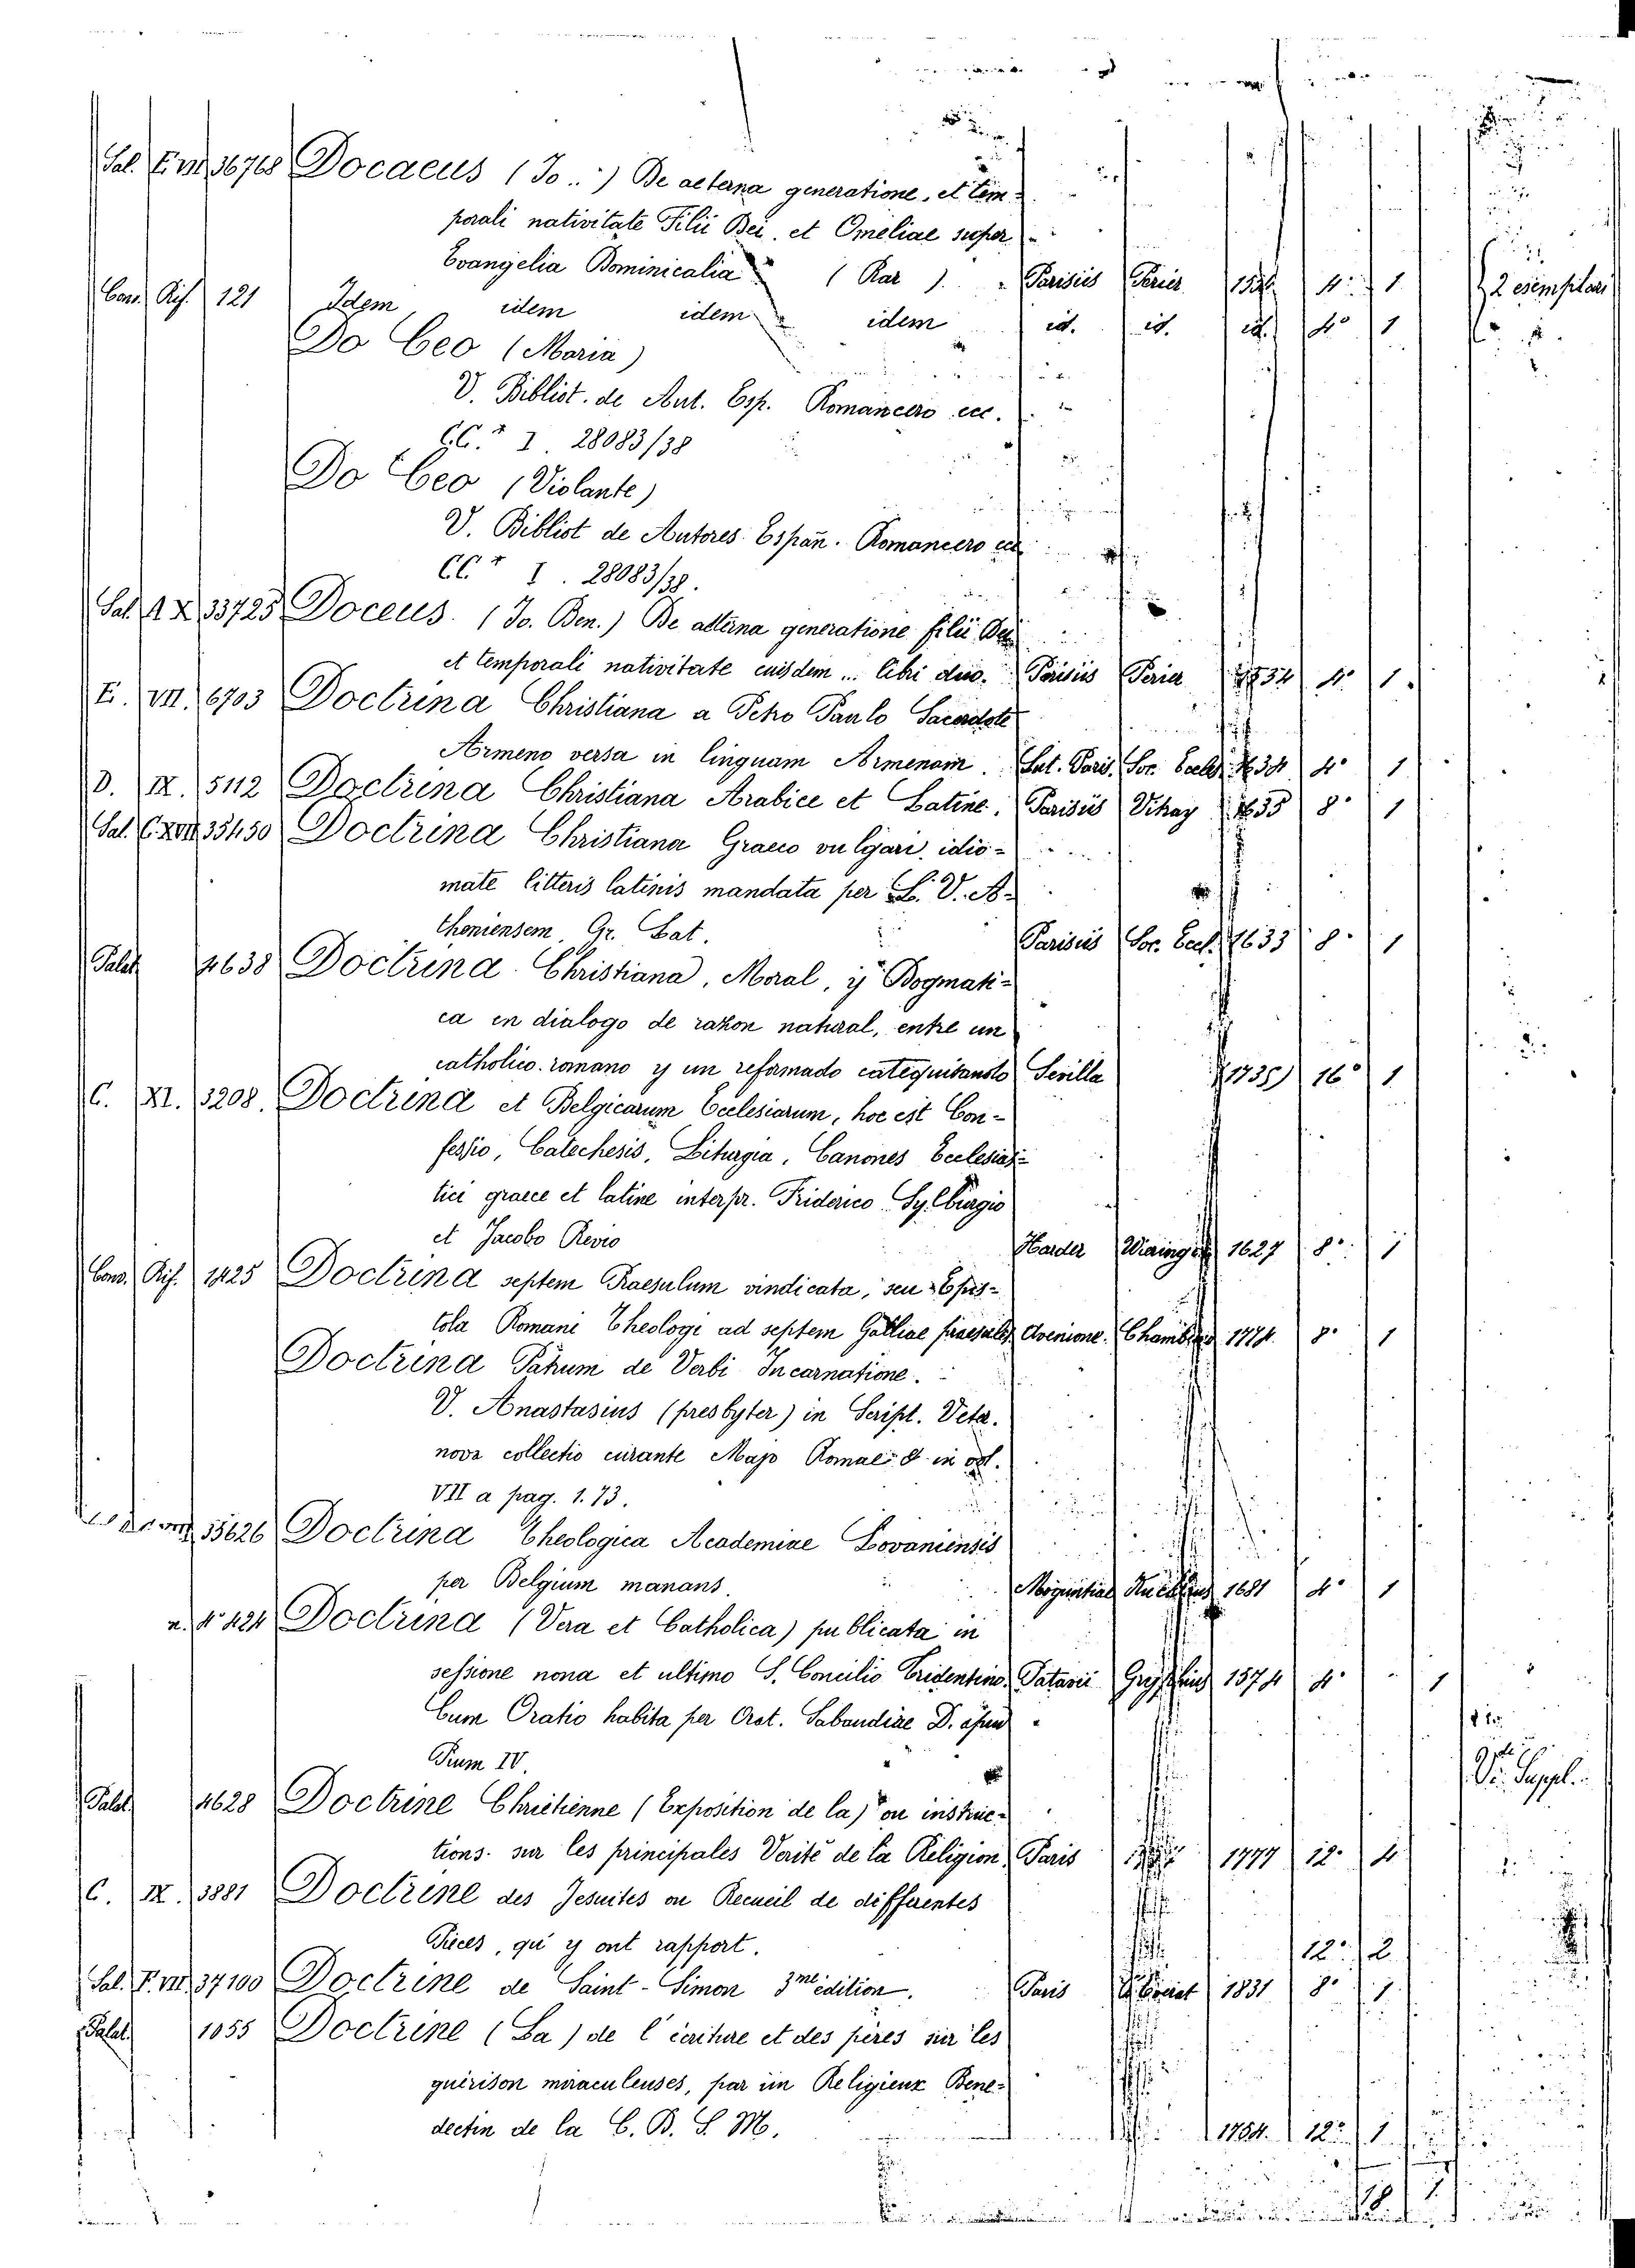 Sal. E. VII 36768 Docaeus (Jo..) De aeterna generatione, et tem-
porali nativitate Filii Dei, et Omeliae super
Evangelia Dominicalia (Rar). Parisiis Perier 4° 1 2 esemplari
Cons. Ris. 121 Idem idem idem idem id. id. id. 4° 1
Do Ceo (Maria)
V. Bibliot. de Aut. Esp. Romancero ecc.
CC.+ I. 28083/38
Do Ceo (Violante)
V. Bibliot de Autores Españ. Romancero ecc
CC+ I. 28083/38.
Sal. A X 33725 Doceus. (Jo. Ben.) De aeterna generatione filii Dei
et temporali nativitate eiusdem ... libri duo. Parisiis Perier 4° 1.
E. VII. 6703 Doctrina Christiana a Petro Paulo Sacerdote
Armeno versa in linguam Armenam. Lut. Paris. Soc. Eccles. 1634 4° 1
D. IX. 5112 Doctrina Christiana Arabice et Latine. Parisiis Vitray 1635 8° 1
Sal. C. XVII 35450 Doctrina Christiana Graeco vulgari idio-
mate litteris latinis mandata per L. V. A-
theniensem Gr. Lat. Parisiis Soc. Eccl. 1633 8° 1
Palat. 4638 Doctrina Christiana, Moral, ij Dogmati-
ca en dialogo de razon natural, entre un
catholico romano y un reformado catequisando Sevilla 16° 1
C. XI. 3208. Doctrina et Belgicarum Ecclesiarum, hoc est Con-
fessio, Catechesis, Liturgia, Canones Ecclesias-
tici graece et latine interpr. Friderico Sylburgio
et Jacobo Revio Harder 1627 8° 1
Cons. Ris. 1425 Doctrina septem Praesulum vindicata, seu Epis-
tola Romani Theologi ad septem Galliae praesules Avenione. 8° 1
Doctrina Patrum de Verbi Incarnatione.
V. Anastasius (presbyter) in Script. Veter.
nova collectio curante Majo Romae in vol.
VII a pag. 1. 73.
35626 Doctrina Theologica Academiae Lovaniensis
per Belgium manans. Moguntiae 1681 4° 1
424 Doctrina (Vera et Catholica) publicata in
sessione nona et ultimo S. Concilio Tridentino. Patavii 1574 4° 1
Cum Oratio habita per Orat. Sabaudiae D. apud
Pium IV.
Suppl.
Palat. 4628 Doctrine Chrietienne (Exposition de la) ou instruc-
tions sur les principales Verité de la Religion Paris 1777 12° 4
C. IX. 3881 Doctrine des Jesuites ou Recueil de differentes
Pieces, qui y ont rapport. 12° 2
Sal. F. VII. 37100 Doctrine de Saint-Simon 3me edition. Paris 1831 8° 1
Palat. 1055 Doctrine (La) de l'ecriture et des peres sur les
guérison miraculeuses, par un Religieux Bene-
dectin de la C. B. S. M. 1754. 12° 1